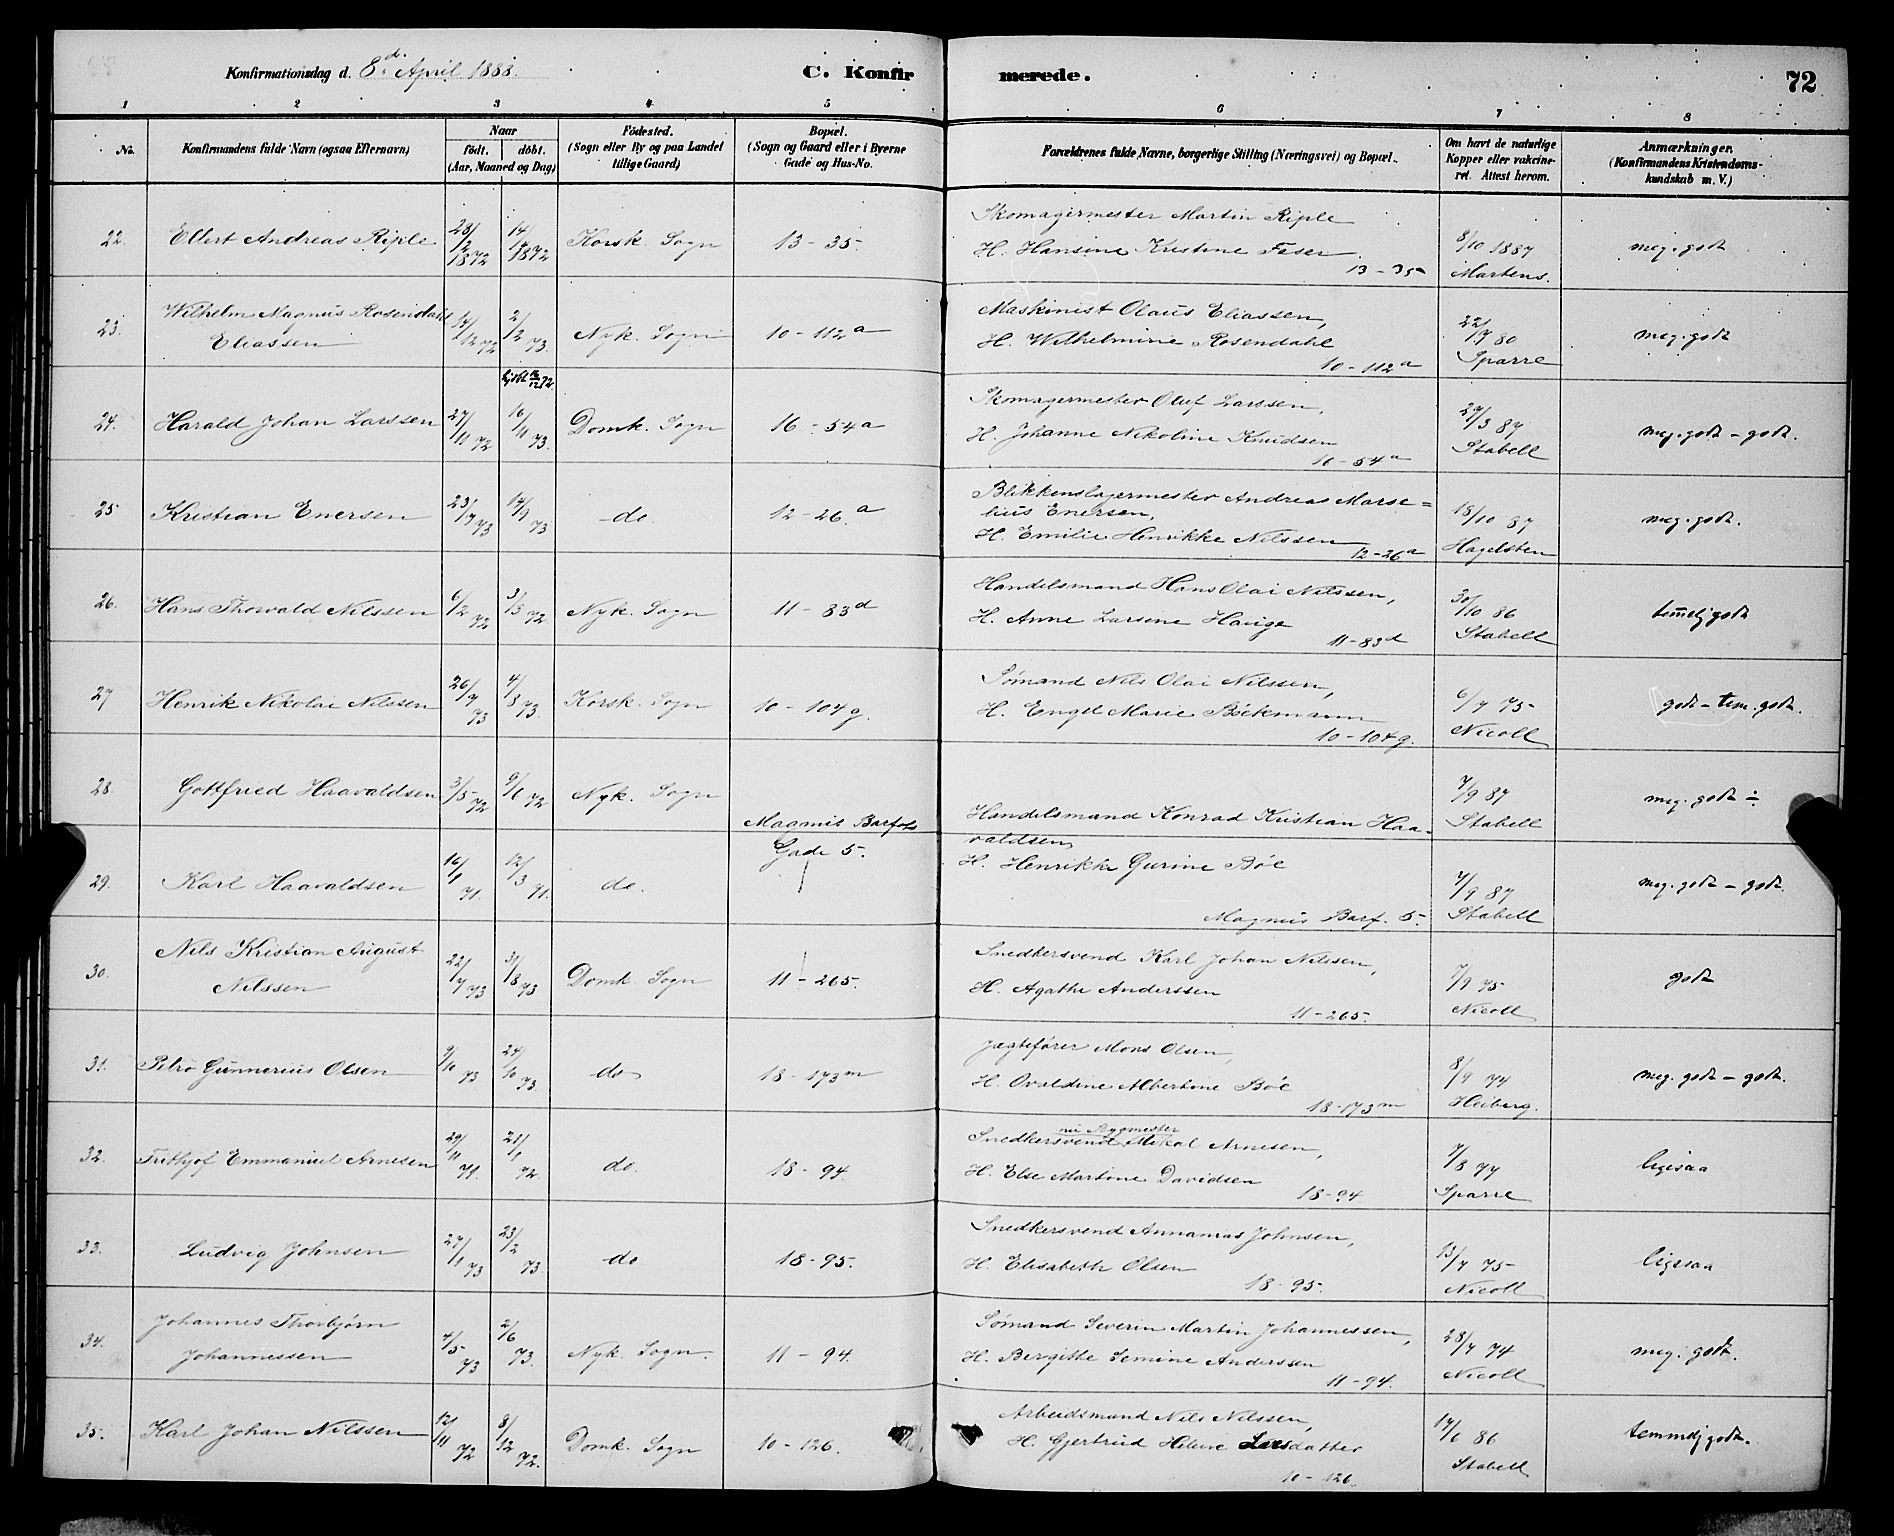 Konfirmationsdag d. 8d. April 1888. C. Konfirmerede. 72
1 2 3 4 5 6 7 8
No. Konfirmandens fulde Navn (ogsaa Efternavn) Naar født. døbt. (Aar, Maaned og Dag) Fødested. (Sogn eller By og paa Landet tillige Gaard) Bopæl. (Sogn og Gaard eller i Byerne Gade og Hus-No. Forældrenes fulde Navne, borgerlige Stilling (Næringsvei) og Bopæl. Om havt de naturlige Kopper eller vakcineret. Attest herom. Anmærkninger. (Konfirmandens Kristendomskundskab m. V.)
22. Ellert Andreas Riple 28/2 1872 14/4 1872 Korsk. Sogn 13-35. Skomagermester Martin Riple
H. Hansine Kristine Feser 13-35 8/10 1887 Martens. meg. godt
23. Wilhelm Magnus Rosendahl Eliassen 14/12 72 2/2 73. Nyk. Sogn 10-112a Maskinist Olaus Eliassen,
H. Wilhelmine Rosendahl 10-112a 22/7 80 Sparre meg. godt
24. Harald Johan Larssen 27/11 72 16/11 73. Domk. Sogn 16-54a Skomagermester Oluf Larssen,
H. Johanne Nikoline Knudsen 16-54a 29/3 87 Stabell meg. godt - godt.
25 Kristian Enersen 23/7 73 14/9 73 do. 12-26.a Blikkenslagermester Andreas Marselius Enersen,
H. Emilie Henrikke Nilssen 12-26a 18/10 87 Hagelsten meg. godt.
26. Hans Thorvald Nilssen 6/2 72 3/3 72. Nyk. Sogn 11-83d Handelsmand Hans Olai Nilssen,
H. Anne Larsene Hauge 11-83d 30/10 86 Stabell temmelig godt
27 Henrik Nikolai Nilssen 26/7 73 4/8 73. Korsk. Sogn 10-104g. Sømand Nils Olai Nilssen,
H. Engel Marie Bøckmann 10-104g. 6/7 75 Nicoll godt - tem. godt.
28. Gottfried Haavaldsen 3/5 72 9/6 72 Nyk. Sogn Magnus Barfots Gade 5. Handelsmand Konrad Kristian Haavaldsen
H. Henrikke Gurine Bøe 7/9 87 Stabell meg. godt ÷
29. Karl Haavaldsen 16/1 71. 12/3 71. do. Magnus Barf. 5. 7/9 87 Stabell meg. godt - godt.
30. Nils Kristian August Nilssen 22/7 73 31/8 73 Domk. Sogn 11-265. Snedkersvend Karl Johan Nilssen,
H. Agathe Anderssen 11-265. 7/9 75 Nicoll godt
31. Petro Gunnerius Olsen 9/10 73 24/10 73 do 18-173m Jægtefører Mons Olsen,
H. Ovaldine Albertine Bøe 18-173m 8/9 74 Heiberg. meg. godt - godt.
32. Frithjof Emmanuel Arnesen 29/11 71. 21/1 72. do. 18-94. Snedkersvend Mikal Arnesen,
H. Else Martine Davidsen 18-94. 7/8 77 Sparre ligesaa
33. Ludvig Johnsen 27/1 73 23/2 73. do 18-95. Snedkersvend Annanias Johnsen,
H. Elisabeth Olsen 18-95. 13/7 75 Nicoll ligesaa
34. Johannes Thorbjørn Johannessen 4/5 73 2/6 73. Nyk. Sogn. 11-94. Sømand Severin Martin Johannessen,
H. Bergitte Semine Anderssen 11-94. 28/7 74 Nicoll meg. godt.
35. Karl Johan Nilssen 12/11 72 8/12 72. Domk. Sogn 10-126. Arbeidsmand Nils Nilssen,
H. Gjertrud Helene Larsdatter 10-126. 17/6 86 Stabell temmelig godt.